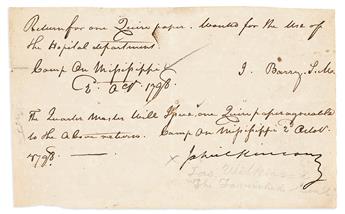 Return for one Quire paper. Wanted for the Use of
the Hospital department.
Camp On Mississippi
2. Octr. 1798. J. Barry S. Ma
The Quarter Master Will Issue one Quire paper agreeable
to the Above return. Camp On Mississippi 2d Octob.
1798.
x Ja Wilkinson
Jas. Wilkinson
The